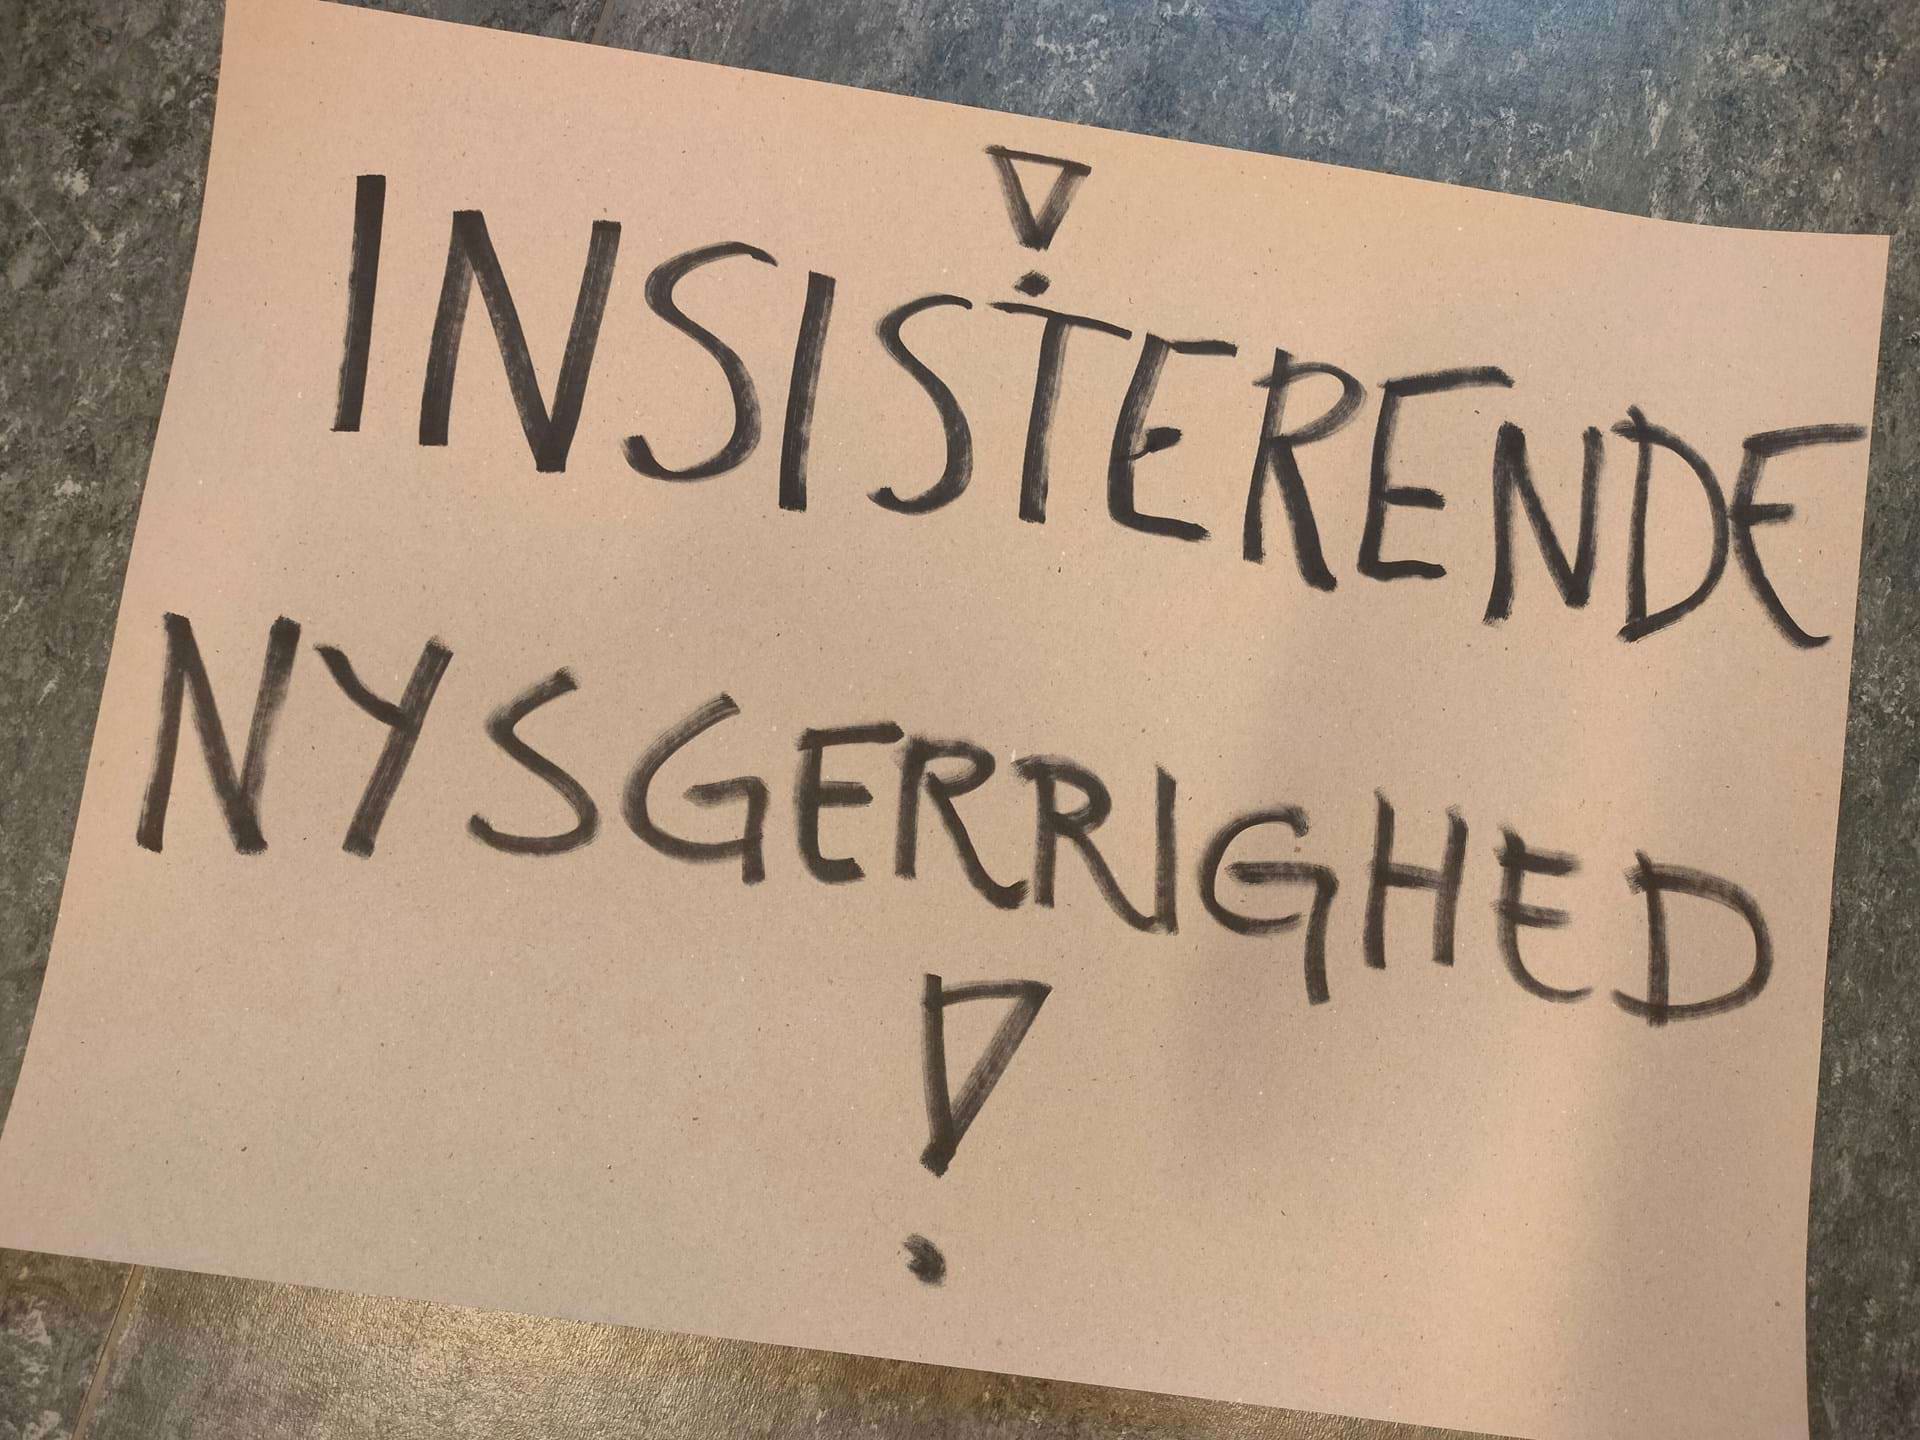 !
INSISTERENDE
NYSGERRIGHED
!